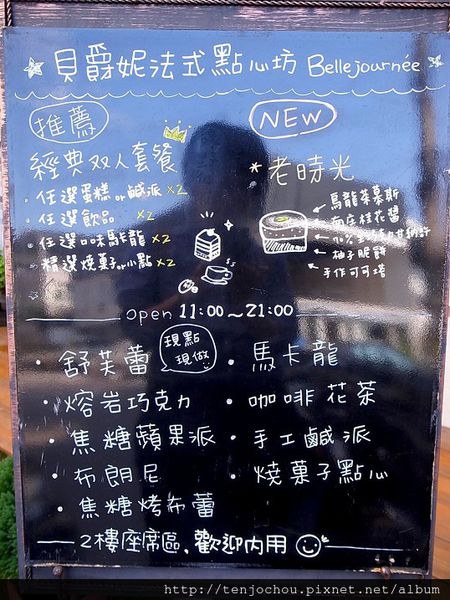 貝爵妮法式點心坊 Bellejournée
推薦
經典双人套餐
· 任選蛋糕or鹹派 x2
· 任選飲品 x2
· 任選咔馬龍 x2
· 精選燒菓子or小點 x2
NEW
*老時光
馬龍茶慕斯
柚子脆餅
手作可可塔
open 11:00~21:00
現點
現做
· 舒芙蕾
· 熔岩巧克力
· 焦糖蘋果派
· 布朗尼
· 焦糖烤布蕾
· 馬卡龍
· 咖啡花茶
· 手工鹹派
· 燒菓子點心
2樓座席區,歡迎內用
http://tenjochou.pixnet.net/album